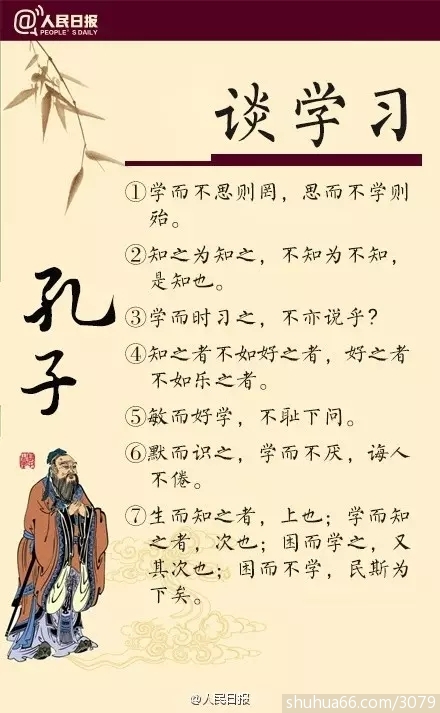 @人民日报
PEOPLE'S DAILY
谈学习
孔子
①学而不思则罔，思而不学则
殆。
②知之为知之，不知为不知，
是知也。
③学而时习之，不亦说乎？
④知之者不如好之者，好之者
不如乐之者。
⑤敏而好学，不耻下问。
⑥默而识之，学而不厌，诲人
不倦。
⑦生而知之者，上也；学而知
之者，次也；困而学之，又
其次也；困而不学，民斯为
下矣。
@人民日报
shuhua66.com/3079